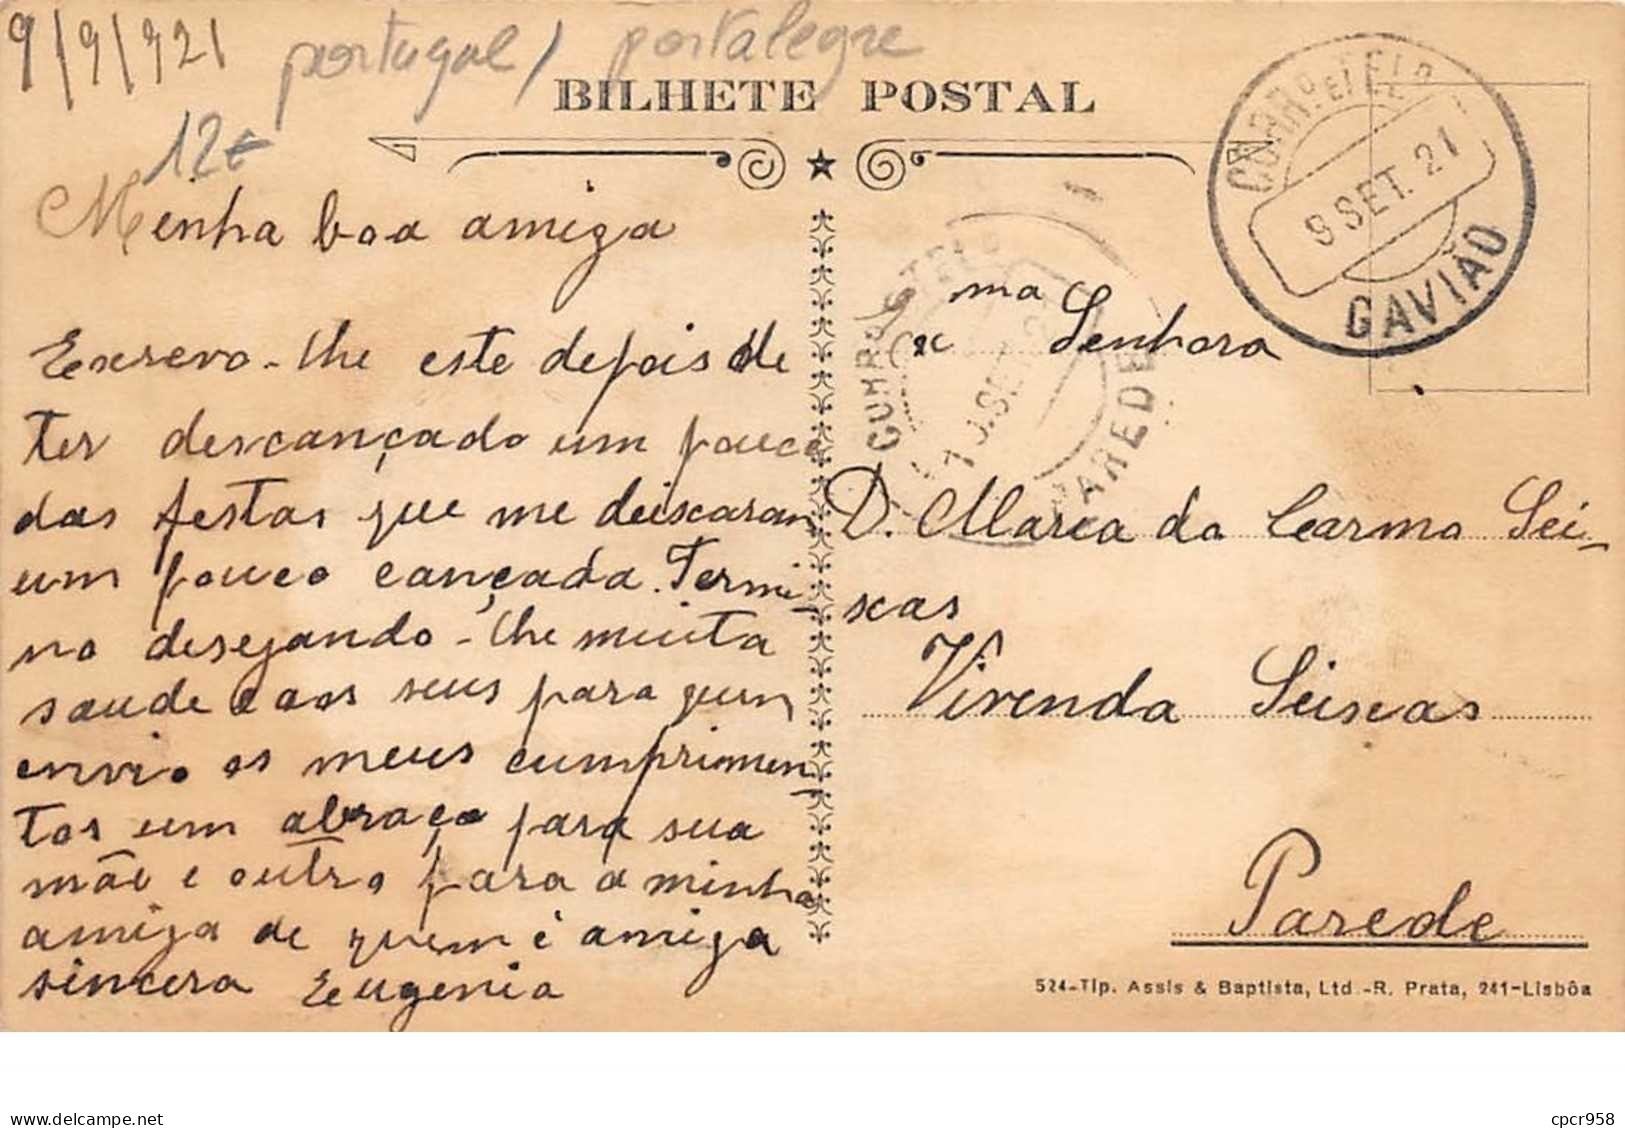 9/9/921
portugal / portalegre
12€
BILHETE POSTAL
CORRO. E TELO.
9 SET. 21
GAVIÃO
Minha boa amiga
Escrevo-lhe este depois de
ter descançado um pouco
das festas que me deixaram
um pouco cançada. Termi-
no desejando-lhe muita
saude e aos seus para quem
envio os meus cumprimen-
tos um abraço para sua
mãe e outro para a minha
amiga de quem é amiga
sincera Eugenia
PAREDE
Exma Senhora
D. Maria do Carmo Sei-
xas
Vivenda Seixas
Parede
524-Tip. Assis & Baptista, Ltd.-R. Prata, 241-Lisbôa
delcampe.net
cpcr958